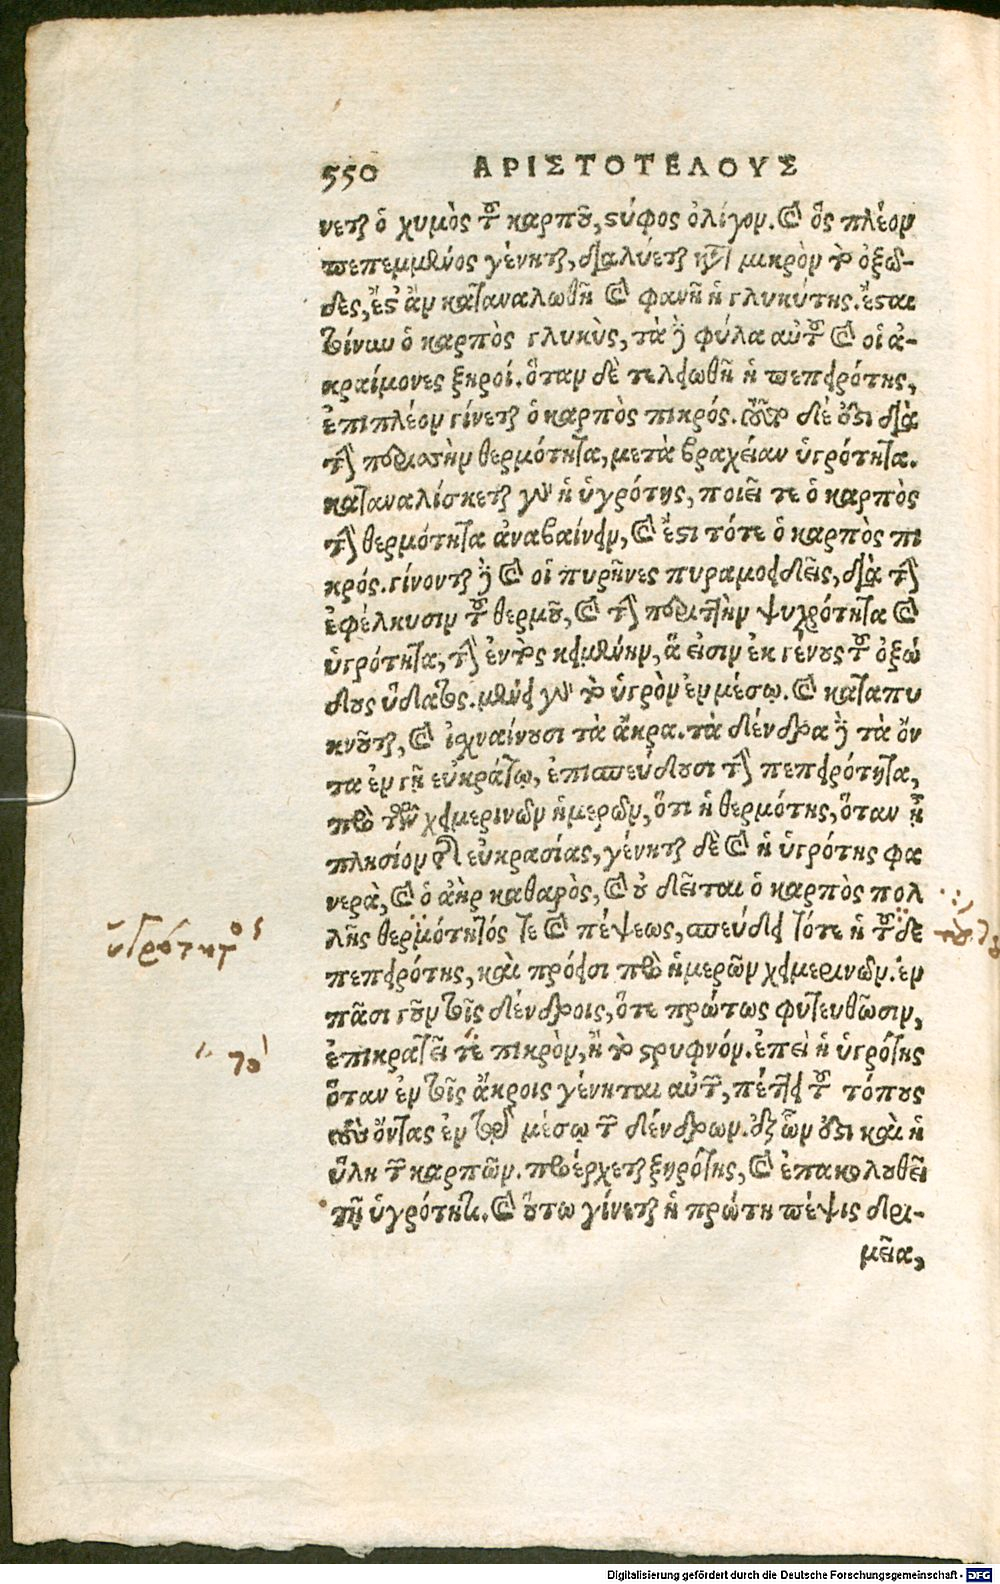 550 ΑΡΙΣΤΟΤΕΛΟΥΣ
νεται ὁ χυμὸς τοῦ καρποῦ, στύφος ὀλίγον. καὶ ὃς πλέον
πεπεμμένος γένηται, διαλύεται κατὰ μικρὸν τὸ ὀξῶ-
δες, ἔστ' ἂν καταναλωθῇ καὶ φανῇ ἡ γλυκύτης. ἔσται
τοίνυν ὁ καρπὸς γλυκὺς, τὰ δὲ φύλα αὐτοῦ καὶ οἱ ἀ-
κραίμονες ξηροί. ὅταν δὲ τελειωθῇ ἡ πεπειρότης,
ἐπιπλέον γίνεται ὁ καρπὸς πικρός. τοῦτο δέ ἐστι διὰ
τὴν περισσὴν θερμότητα, μετὰ βραχείαν ὑγρότητα.
καταναλίσκεται γὰρ ἡ ὑγρότης, ποιεῖ τε ὁ καρπὸς
τὴν θερμότητα ἀναβαίνειν, καὶ ἔστι τότε ὁ καρπὸς πι
κρός. γίνονται δὲ καὶ οἱ πυρῆνες πυραμοειδεῖς, διὰ τὴν
ἐφέλκυσιν τοῦ θερμοῦ, καὶ τὴν περιττὴν ψυχρότητα καὶ
ὑγρότητα, τὴν ἐντὸς κειμένην, ἅ εἰσιν ἐκ γένους τοῦ ὀξώ
δους ὕδατος. μένει γὰρ τὸ ὑγρὸν ἐν μέσῳ. καὶ καταπυ
κνοῦται, καὶ ἰχναίνουσι τὰ ἄκρα. τὰ δένδρα δὲ τὰ ὄν
τα ἐν γῇ εὐκράτῳ, ἐπισπεύδουσι τὴν πεπειρότητα,
πρὸ τῶν χειμερινῶν ἡμερῶν, ὅτι ἡ θερμότης, ὅταν ᾖ
πλησίον τῆς εὐκρασίας, γένηται δὲ καὶ ἡ ὑγρότης φα
νερὰ, καὶ ὁ ἀὴρ καθαρὸς, καὶ οὐ δεῖται ὁ καρπὸς πολ
λῆς θερμότητός τε καὶ πέψεως, σπεύδει τότε ἡ τοῦδε
πεπειρότης, καὶ πρόεισι πρὸ ἡμερῶν χειμερινῶν. ἐν
πᾶσι γοῦν τοῖς δένδροις, ὅτε πρώτως φυτευθῶσιν,
ἐπικρατεῖ τε πικρὸν, ἢ τὸ στρυφνόν. ἐπεὶ ἡ ὑγρότης
ὅταν ἐν τοῖς ἄκροις γένηται αὐτῶν, πέττει τοὺς τόπους
τοὺς ὄντας ἐν τῷ μέσῳ τῶν δένδρων. ἐξ ὧν ἐστι καὶ ἡ
ὕλη τῶν καρπῶν. προέρχεται ξηρότης, καὶ ἐπακολουθεῖ
τῇ ὑγρότητι. καὶ οὕτω γίνεται ἡ πρώτη πέψις δρι-
μεῖα,
ὑγρότητος
τὸ